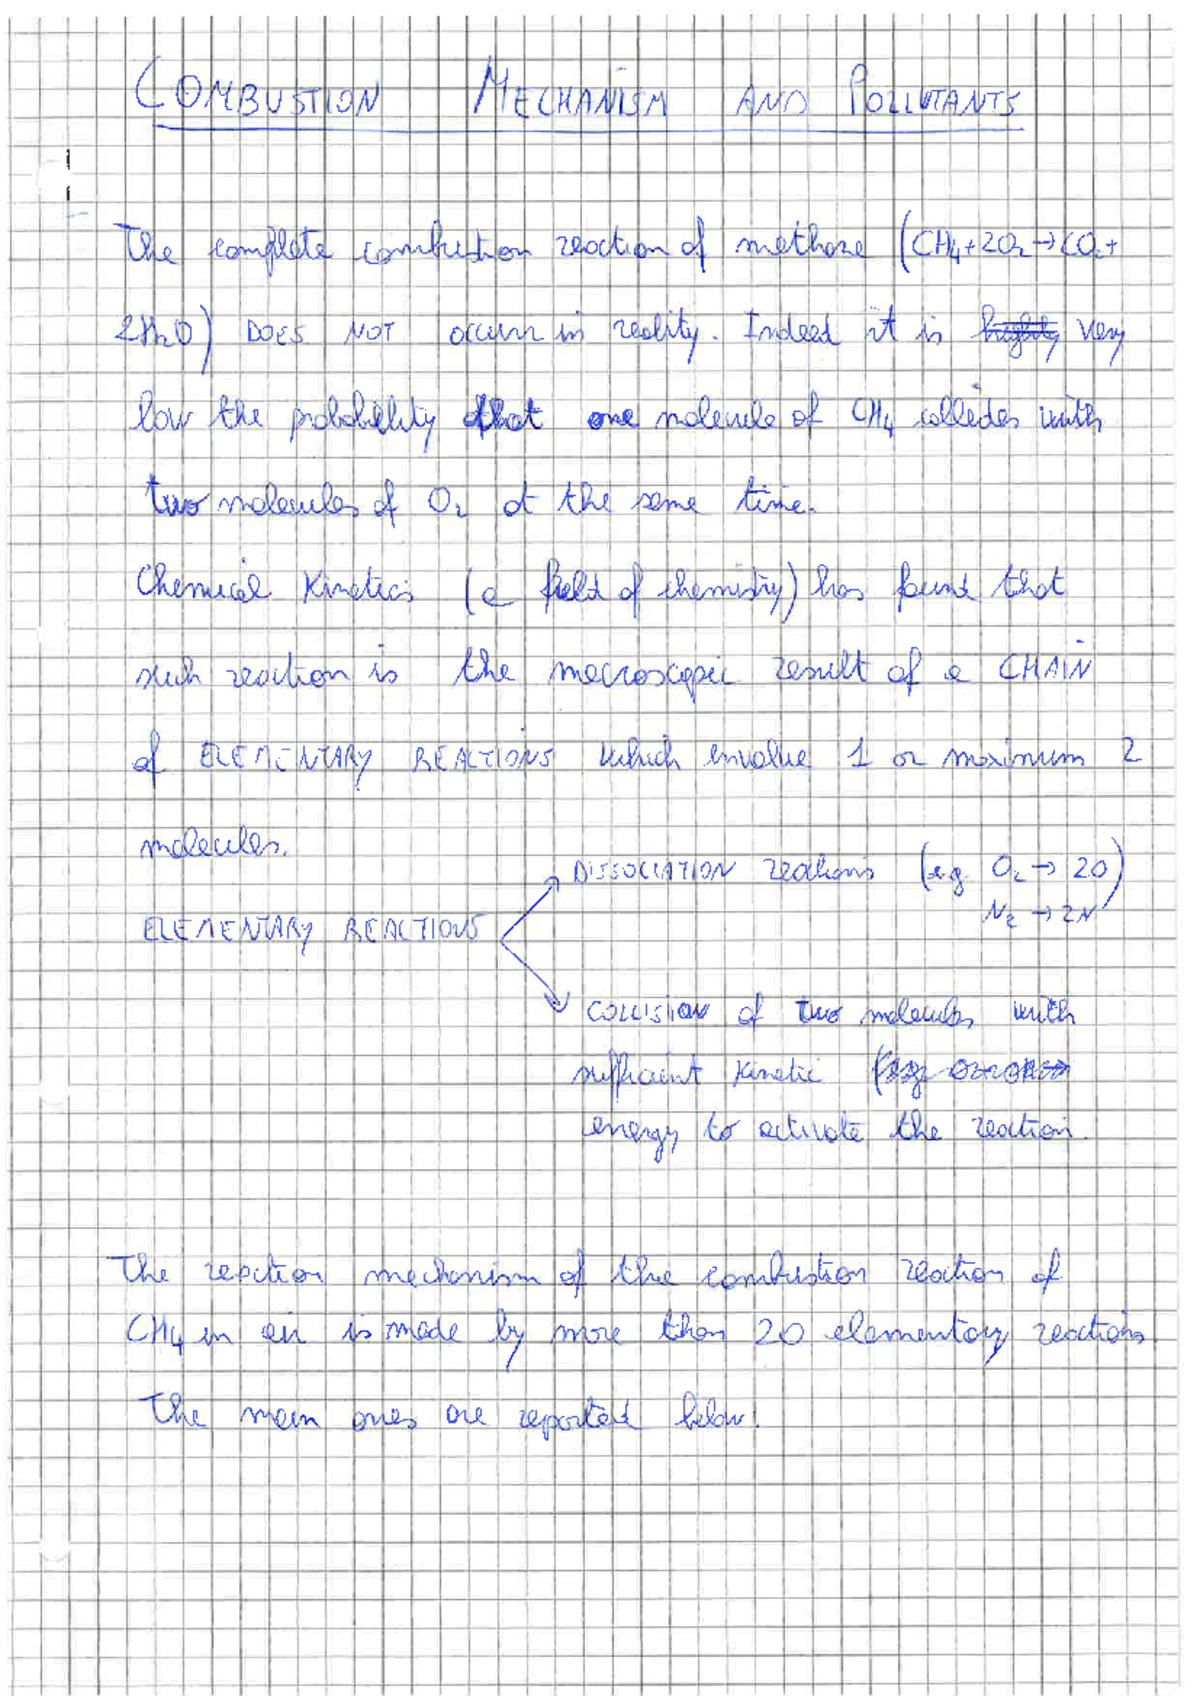 COMBUSTION MECHANISM AND POLLUTANTS
The complete combustion reaction of methane (CH₄+2O₂→CO₂+
2H₂O) DOES NOT occurr in reality. Indeed it is highly very
low the probability that one molecule of CH₄ collides with
two molecules of O₂ at the same time.
Chemical Kinetics (a field of chemistry) has found that
such reaction is the macroscopic result of a CHAIN
of ELEMENTARY REACTIONS which envolve 1 or maximum 2
molecules.
DISSOCIATION reactions (e.g. O₂ → 2O)
N₂ → 2N
ELEMENTARY REACTIONS
COLLISION of two molecules with
sufficient kinetic
energy to activate the reaction.
The reaction mechanism of the combustion reaction of
CH₄ in air is made by more than 20 elementary reactions
The main ones are reported below: